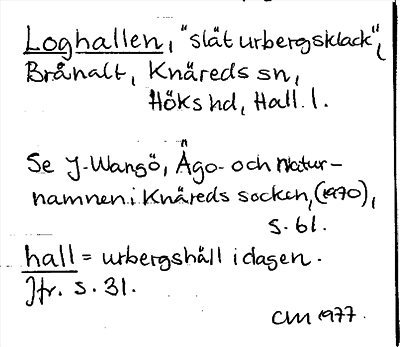 Loghallen, "slät urbergsklack",
Brånalt, Knäreds sn,
Höks hd, Hall. l.
Se J-Wangö, Ägo- och natur-
namnen i Knäreds socken, (1970),
s. 61.
hall = urbergshäll i dagen.
Jfr. s. 31.
CM 1977.